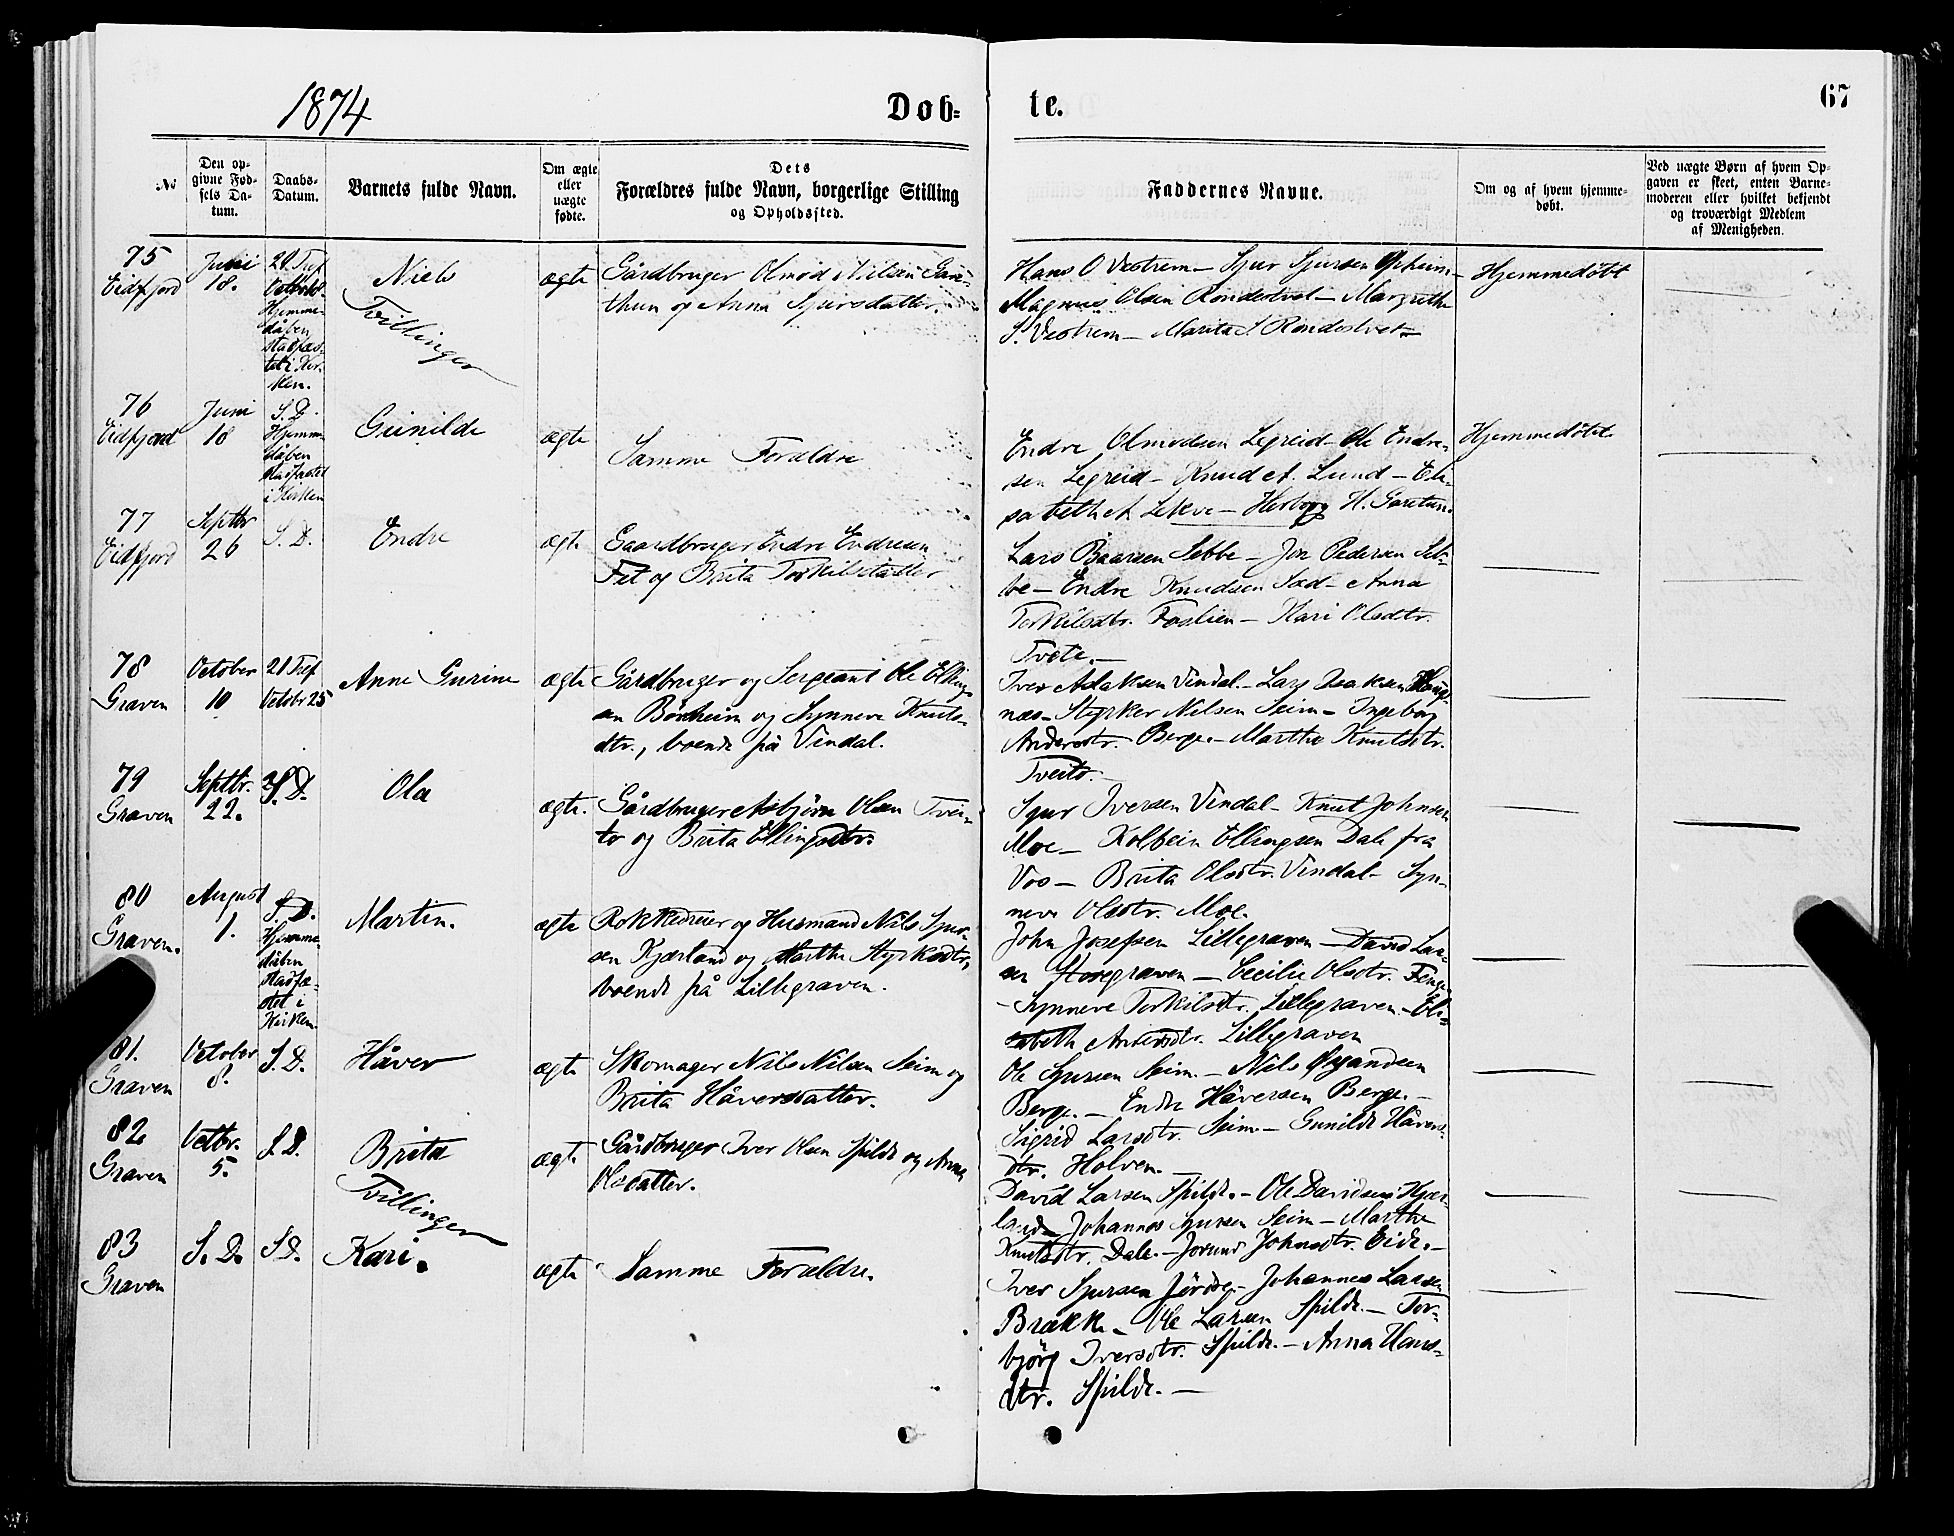 1874
Døb-
te.
67
No
Den op-
givne Fød-
sels Da-
tum.
Daabs-
Datum.
Barnets fulde Navn.
Om ægte
eller
uægte
fødte.
Dets
Forældres fulde Navn, borgerlige Stilling
og Opholdssted.
Faddernes Navne.
Om og af hvem hjemme-
døbt.
Ved uægte Børn af hvem Op-
gaven er skeet, enten Barne-
moderen eller hvilket bekjendt
og troværdigt Medlem
af Menigheden.
75
Eidfjord
Juni
18.
20 Tref
Octbr
Hjemme-
dåben
stadfæs-
tet i Kir-
ken.
Niels
Tvillinger
ægte
Gårdbruger Olmod Nilsen Garé-
thun og Anna Sjursdatter.
Hans O Vestrem – Sjur Sjursen Opheim –
Magnus Olsen Rondestvet – Margrethe
S. Vestrem – Marita S. Rondestvet –
Hjemmedöbt
76
Eidfjord
Juni
18
S. D.
Hjemme
dåben
stadfæstet
i Kirken
Gunilde
ægte
Samme Forældre
Endre Olmodsen Legreid – Ole Endre-
sen Legreid – Knud A. Lund – Eli-
sabeth A Lekve – Herborg H. Garetun.
Hjemmedöbt
77
Eidfjord
Septbr
26
S. D.
Endre
ægte
Gaardbruger Endre Endresen
Fet og Brita Torkilsdatter
Lars Baarsen Sebbe – Jon Pedersen Seb-
be – Endre Knudsen Sæd – Anna
Torkilsdtr. Foslien – Kari Olsdtr.
Tveite. –
78
Graven
October
10
21 Tref
Octobr 25
Anne Gurine
ægte
Gårdbruger og Sergeant Ole Elling-
sen Bönheim og Synneve Knuts-
dtr., boende på Vindal.
Iver Aslaksen Vindal – Lars Isaksen Haug-
næs – Styrker Nilsen Seim – Ingeborg
Andersdtr. Berge. – Martha Knutsdtr.
Tveito. –
79
Graven
Septbr.
22.
S. D.
Ola
ægte.
Gårdbruger Asbjörn Olsen Tvei-
to og Brita Ellingsdtr.
Sjur Iversen Vindal – Knut Johnsen
Moe – Kolbein Ellingsen Dale fra
Vos – Brita Olsdtr. Vindal – Syn-
neve Olsdtr. Moe.
80
Graven.
August
1.
S. D.
Hjemme-
dåben
stadfæ-
stet i
Kirken.
Martin.
ægte
Rokkedreier og Husmand Nils Sjur-
sen Kjærland og Marthe Styrksdtr,
boende på Lillegraven.
John Josefsen Lillegraven – David Lar-
sen Storegraven – Cecilie Olsdtr.
– Synneve Torkilsdtr. Lillegraven. – Eli-
sabeth Andersdtr. Lillegraven
81.
Graven
October
8.
S. D.
Håver
ægte
Skomager Nils Nilsen Seim og
Brita Håversdatter.
Ole Sjursen Seim. – Nils
Berge. – Endre Håversen Berge. –
Sigrid Larsdtr. Seim – Gunilde Håvers-
dtr. Holven. –
82
Graven
Octbr.
5.
S D.
Brita
Tvillinger
ægte
Gårdbruger Iver Olsen Spilde og Anna
Olsdatter.
David Larsen Spilde. – Ole Davidsen Kjær-
land – Johannes Sjursen Seim – Marthe
Knutsdtr. Dale. – Jorund Johnsdtr. Eide. –
83
Graven
S. D.
S D.
Kari.
ægte
Samme Forældre.
Iver Sjursen – Johannes Larsen
Brække – Ole Larsen Spilde. – Tor-
björg Iversdtr. Spilde. – Anna Hans-
dtr. Spilde. –